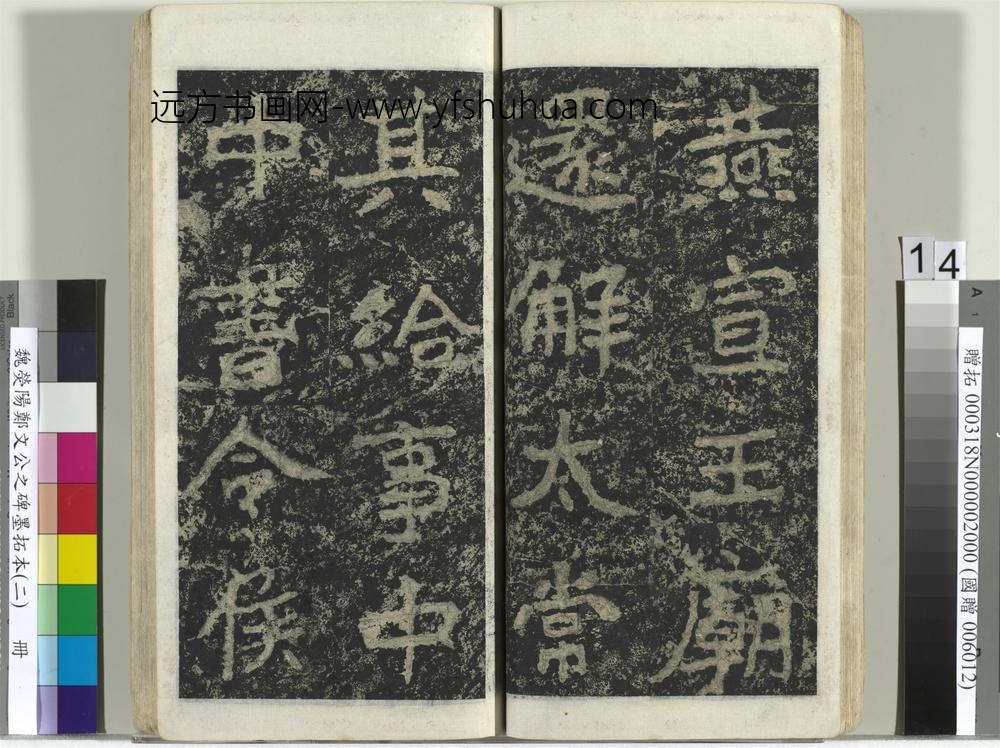 远方书画网-www.yfshuhua.com
燕宣王廟
還解太常
其給事中
中書令侯
魏滎陽鄭文公之碑墨拓本(二) 冊
14
A
1
贈拓 000318N000002000 (國贈 006012)
Black